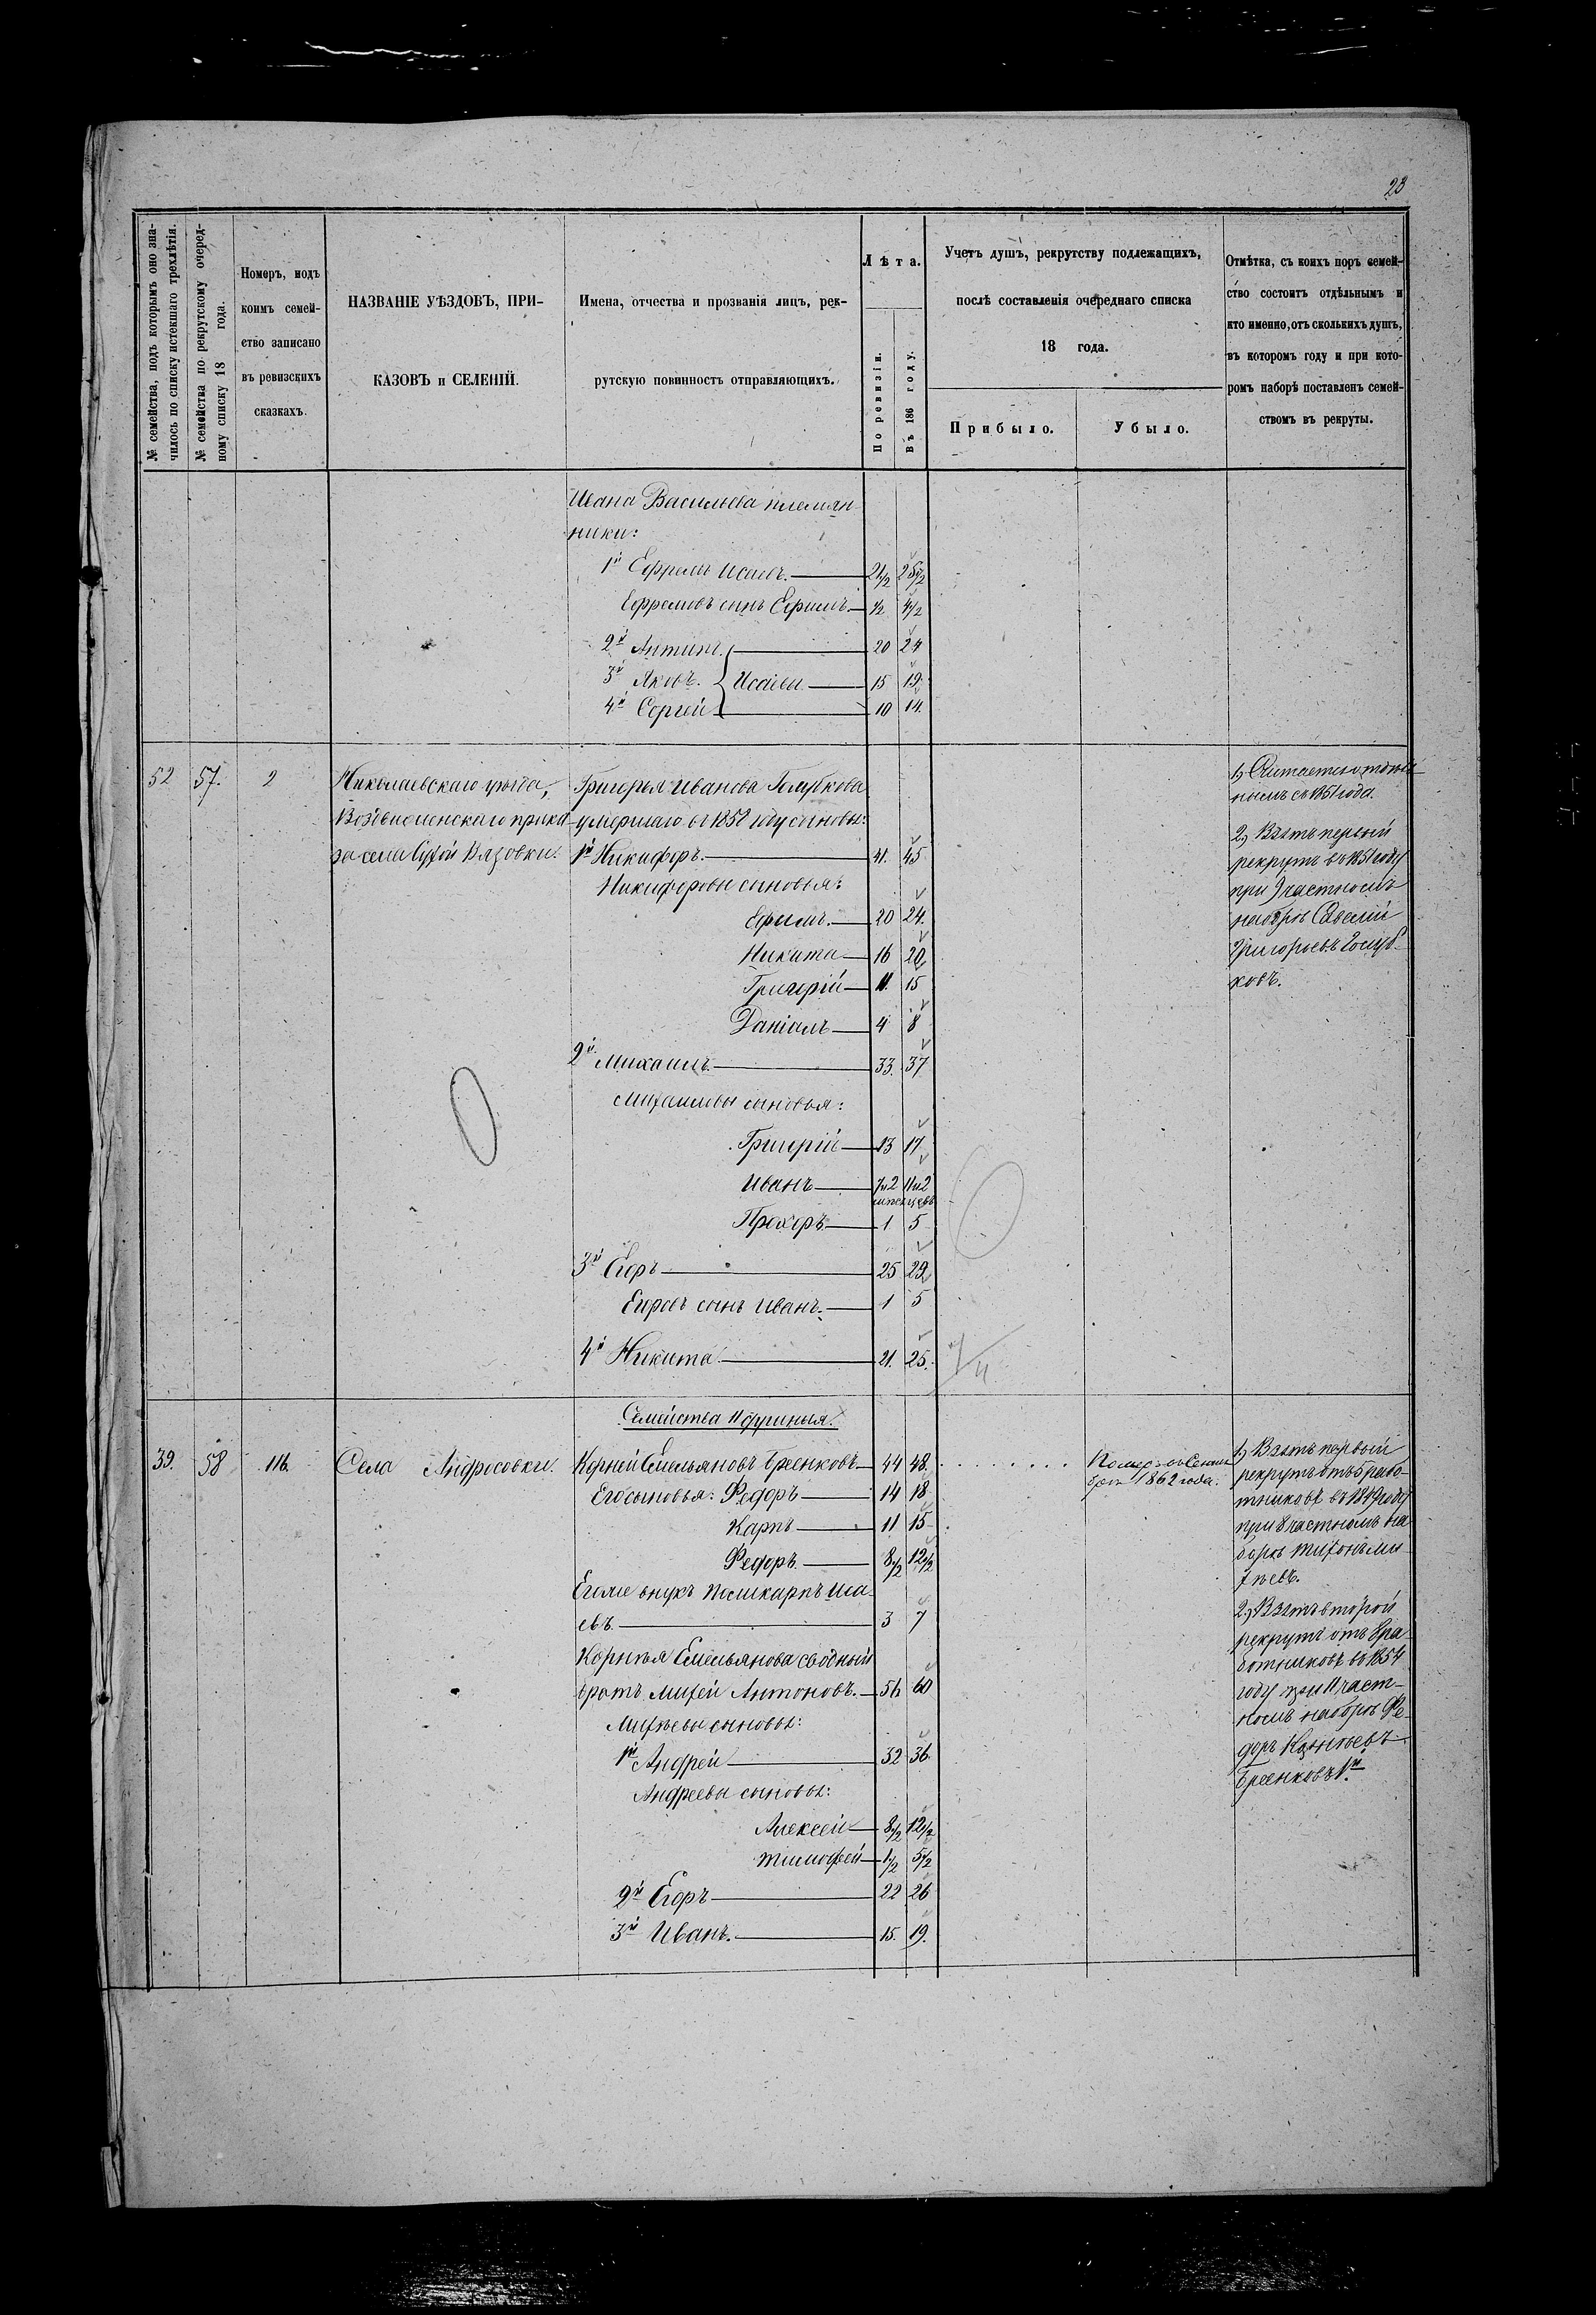 23
№ семейства, подъ которымъ оно зна-
чилось по списку истекшаго трехлѣтія.
№ семейства по рекрутскому очеред-
ному списку 18 года.
Номеръ, подъ
коимъ семей-
ство записано
въ ревизскихъ
сказкахъ.
НАЗВАНІЕ УѢЗДОВЪ, ПРИ-
КАЗОВЪ и СЕЛЕНІЙ.
Имена, отчества и прозванія лицъ, рек-
рутскую повинность отправляющихъ.
Лѣта.
По ревизіи.
Въ 186 году.
Учетъ душъ, рекрутству подлежащихъ,
послѣ составленія очереднаго списка
18 года.
Прибыло.
Убыло.
Отмѣтка, съ коихъ поръ семей-
ство состоитъ отдѣльнымъ и
кто именно, отъ сколькихъ душъ,
въ которомъ году и при кото-
ромъ наборѣ поставленъ семей-
ствомъ въ рекруты.
Ивана Васильева племян-
ники:
1й Ефремъ Исаевъ. 21/2 25/2
Ефремовъ сынъ Ефимъ. 1/2 4/2
2й Антипъ. 20 24
3й Яковъ. Исаевы 15 19.
4й Сергей 10 14.
52 57. 2
Николаевскаго уѣзда,
Вознесенскаго прика-
за села Сухой Вязовки.
Григорья Иванова Голубкова
умершаго въ 1858 году сыновья:
1й Никифоръ. 41. 45
Никифоровы сыновья:
Ефимъ. 20 24.
Никита 16 20
Григорій 11. 15
Даніилъ 4 8
2й Михаилъ. 33. 37
Михаиловы сыновья:
Григорій 13 17
Иванъ 7 и 2 11 и 2
месяцевъ
Прохоръ 1 5
3й Егоръ 25 29
Егоровъ сынъ Иванъ. 1 5
4й Никита 21. 25.
1) Считается отдель-
нымъ съ 1851 года.
2) Взятъ первый
рекрутъ въ 1851 году
при 9 частномъ
наборѣ Савелій
Григорьевъ Голуб-
ковъ.
Семейства 11 душныя.
39. 58 116.
Села Андросовки.
Корней Емельяновъ Бреенковъ 44 48.
Его сыновья: Федоръ 14 18
Карпъ 11 15
Федоръ. 8 1/2 12 1/2
Его же внукъ Поликарпъ Иса-
евъ. 3 7
Корнѣя Емельянова сводный
братъ Михей Антоновъ. 56 60
Михѣевы сыновья:
1й Андрей 32 36
Андреевы сыновья:
Алексей 8 1/2 12 1/2
Тимофей 1 1/2 5 1/2
2й Егоръ 22 26
3й Иванъ. 15. 19.
1862 года.
1) Взятъ первый
рекрутъ отъ 8 рабо-
тниковъ въ 1849 году
при 8 частномъ на-
борѣ Тихонъ Ми-
хѣевъ.
2) Взятъ второй
рекрутъ отъ 8 ра-
ботниковъ въ 1854
году при 11 част-
номъ наборѣ Фе-
доръ
Бреенковъ 1й